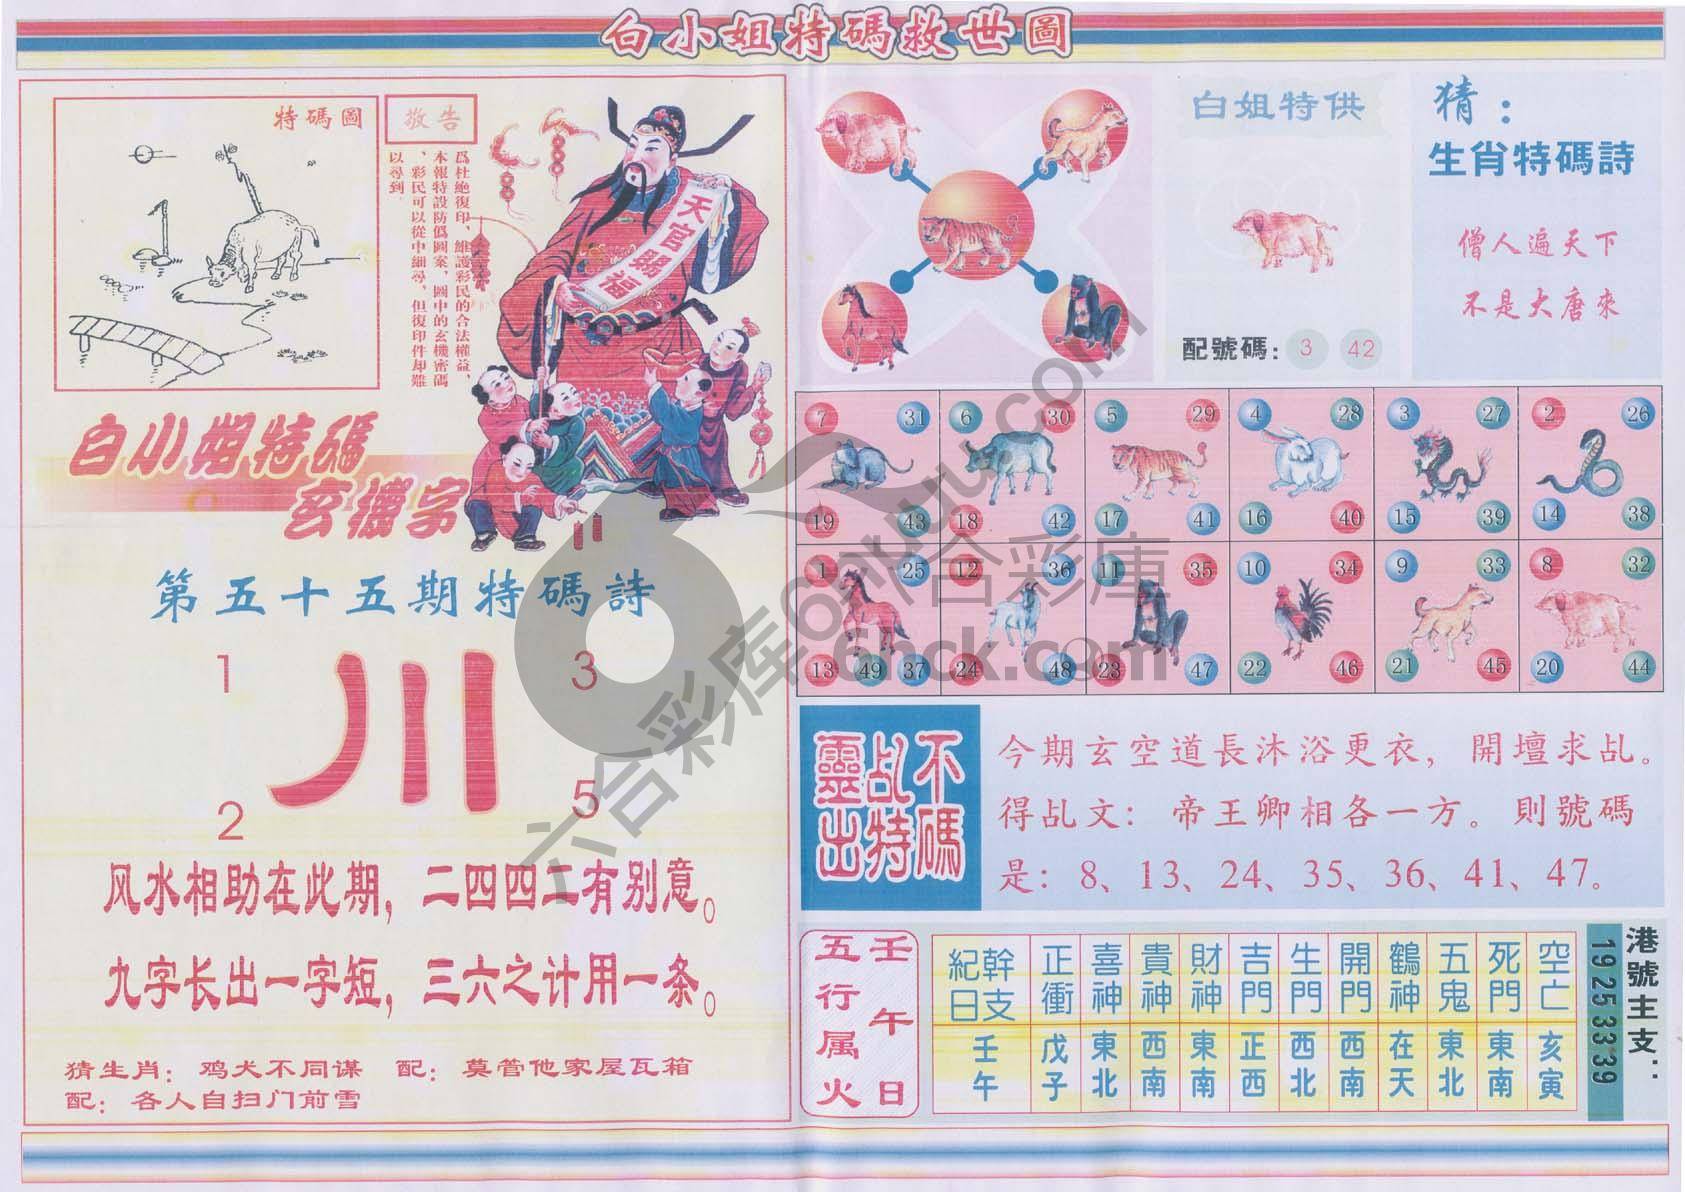 白小姐特碼救世圖
特碼圖
敬告
爲杜絶復印、維護彩民的合法權益、
本報特設防僞圖案、圖中的玄機密碼
、彩民可以從中細尋、但復印件却難
以尋到.
天官賜福
白小姐特碼
玄機字
第五十五期特碼詩
1 3
川
2 5
风水相助在此期，二四四二有别意。
九字长出一字短，三六之计用一条。
猜生肖：鸡犬不同谋 配：莫管他家屋瓦箱
配：各人自扫门前雪
白姐特供
配號碼：3 42
猜：
生肖特碼詩
僧人遍天下
不是大唐來
7 31 6 30 5 29 4 28 3 27 2 26
19 43 18 42 17 41 16 40 15 39 14 38
1 25 12 36 11 35 10 34 9 33 8 32
13 49 37 24 48 23 47 22 46 21 45 20 44
不碼
乩特
靈出
今期玄空道長沐浴更衣，開壇求乩。
得乩文：帝王卿相各一方。則號碼
是：8、13、24、35、36、41、47。
壬午日
五行属火
幹支紀日 正衝 喜神 貴神 財神 吉門 生門 開門 鶴神 五鬼 死門 空亡
壬午 戊子 東北 西南 東南 正西 西北 西南 在天 東北 東南 亥寅
港號主支：
19 25 33 39
六合彩库
六合彩庫
6hck.com